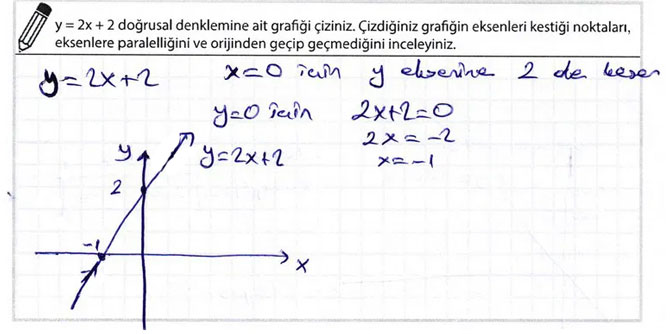 y = 2x + 2 doğrusal denklemine ait grafiği çiziniz. Çizdiğiniz grafiğin eksenleri kestiği noktaları,
eksenlere paralelliğini ve orijinden geçip geçmediğini inceleyiniz.
y=2x+2 x=0 için y eksenine 2 de keser
y=0 için 2x+2=0
2x=-2
x=-1
y y=2x+2
2
-1
x